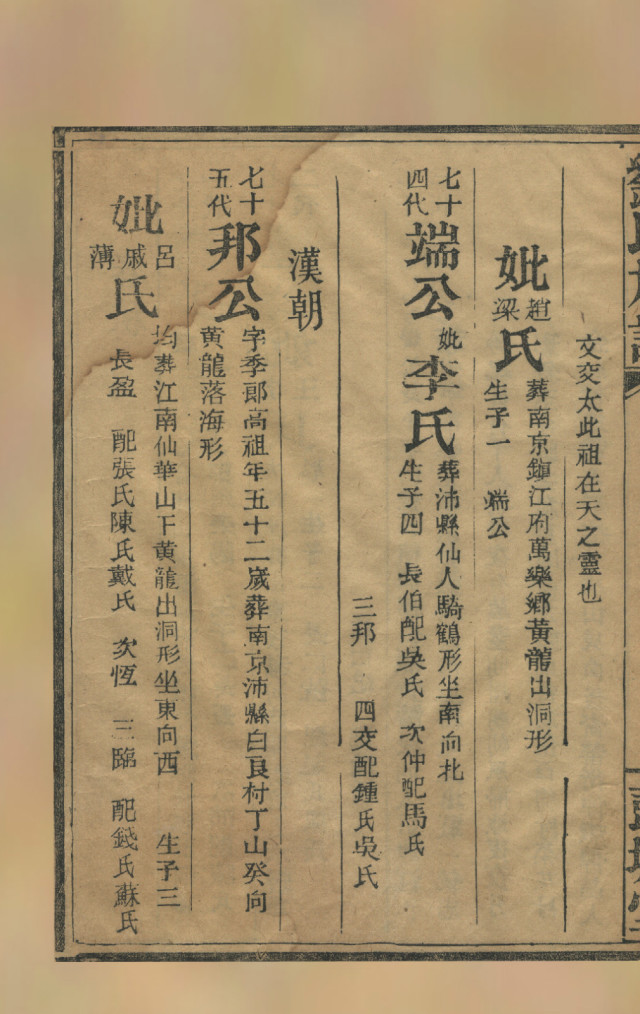 文交太此祖在天之靈也
妣趙梁氏
葬南京鎮江府萬樂鄉黃龍出洞形
生子一 端公
七十四代端公
妣李氏
葬沛縣仙人騎鶴形坐南向北
生子四 長伯配吳氏 次仲配馬氏
三邦 四交配鍾氏吳氏
漢朝
七十五代邦公
字季郎高祖年五十二歲葬南京沛縣白良村丁山癸向
黃龍落海形
妣呂戚薄氏
均葬江南仙華山下黃龍出洞形坐東向西 生子三
長盈 配張氏陳氏戴氏 次恆 三臨 配錢氏蘇氏